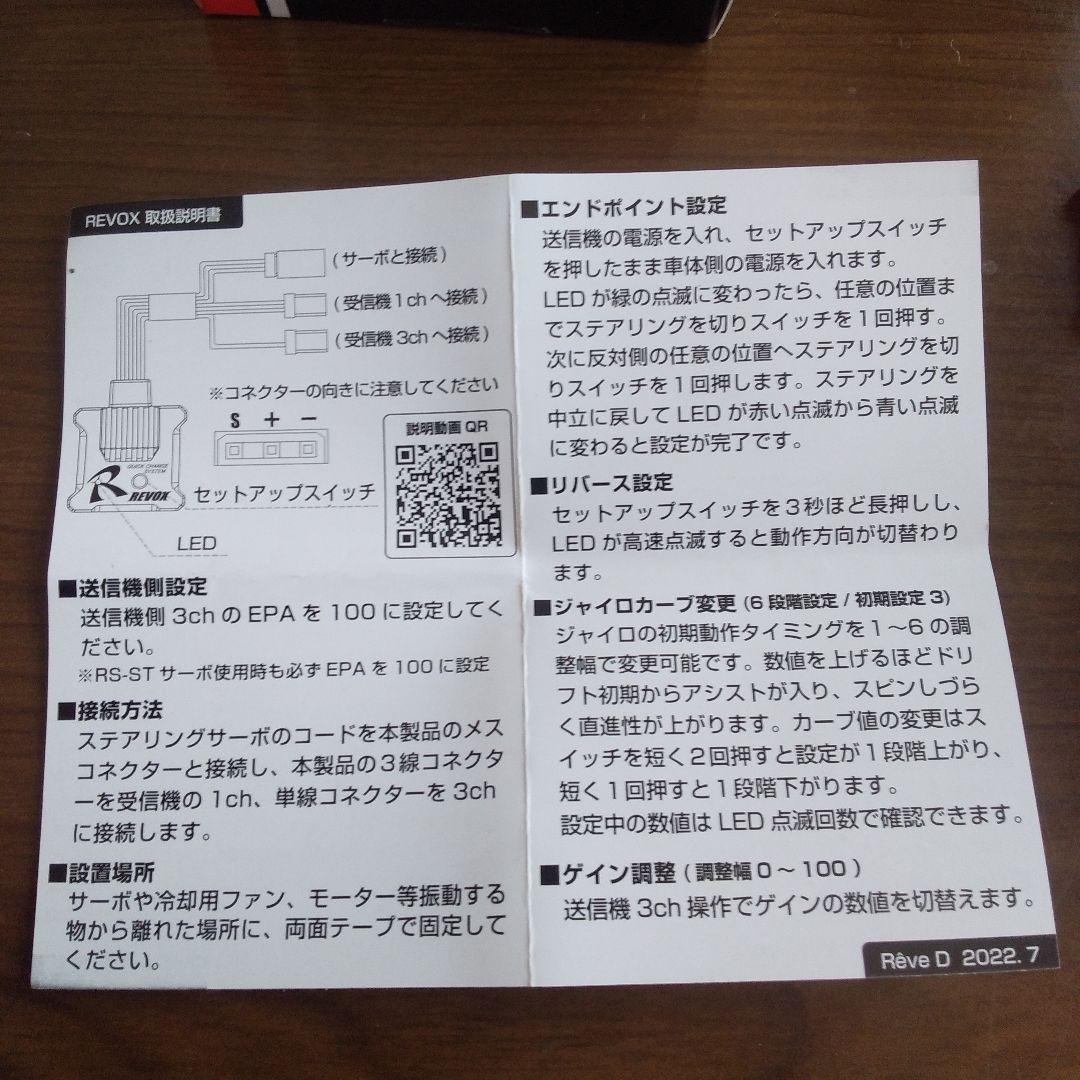 REVOX 取扱説明書
(サーボと接続)
(受信機1chへ接続)
(受信機3chへ接続)
※コネクターの向きに注意してください
S + −
説明動画QR
QUICK CHANGE
SYSTEM
R REVOX
セットアップスイッチ
LED
■送信機側設定
送信機側 3ch の EPA を 100 に設定してく
ださい。
※RS-ST サーボ使用時も必ず EPA を 100 に設定
■接続方法
ステアリングサーボのコードを本製品のメス
コネクターと接続し、本製品の3線コネクタ
ーを受信機の 1ch、単線コネクターを 3ch
に接続します。
■設置場所
サーボや冷却用ファン、モーター等振動する
物から離れた場所に、両面テープで固定して
ください。
■エンドポイント設定
送信機の電源を入れ、セットアップスイッチ
を押したまま車体側の電源を入れます。
LED が緑の点滅に変わったら、任意の位置ま
でステアリングを切りスイッチを1回押す。
次に反対側の任意の位置へステアリングを切
りスイッチを1回押します。ステアリングを
中立に戻して LED が赤い点滅から青い点滅
に変わると設定が完了です。
■リバース設定
セットアップスイッチを3秒ほど長押しし、
LED が高速点滅すると動作方向が切替わり
ます。
■ジャイロカーブ変更 (6 段階設定 / 初期設定 3)
ジャイロの初期動作タイミングを1〜6の調
整幅で変更可能です。数値を上げるほどドリ
フト初期からアシストが入り、スピンしづら
く直進性が上がります。カーブ値の変更はス
イッチを短く2回押すと設定が1段階上がり、
短く1回押すと1段階下がります。
設定中の数値は LED 点滅回数で確認できます。
■ゲイン調整 ( 調整幅 0 〜 100 )
送信機 3ch 操作でゲインの数値を切替えます。
Rêve D 2022. 7